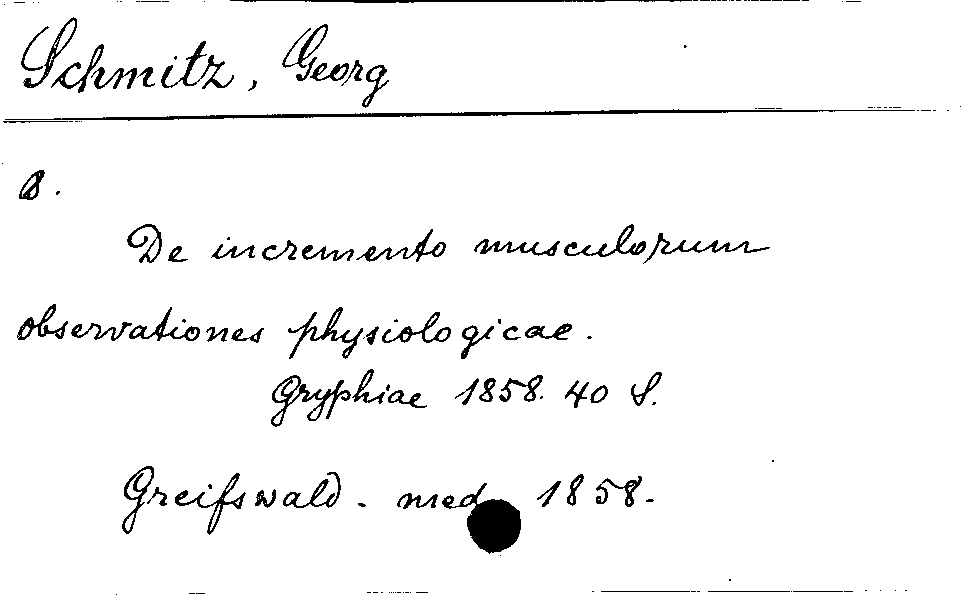 Schmitz, Georg
8.
De incremento musculorum
observationes physiologicae.
Gryphiae 1858. 40 S.
Greifswald. med. 1858.